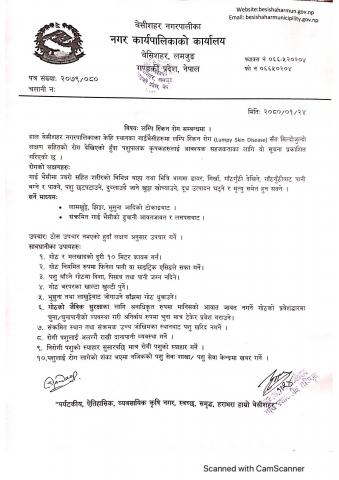 Website:besishaharmun.gov.np
Email: besishaharmunicipality.gov.np
बेसीशहर नगरपालिका
नगर कार्यपालिकाको कार्यालय
बेसिशहर, लमजुङ
गण्डकी प्रदेश, नेपाल
फ्याक्स नं ०६६५२०२०४
फो नं ०६६५२०२४०
पत्र संख्याः २०७९/०८०
चलानी नं:
मितिः २०८०/०१/२४
विषयः लम्पि स्किन रोग सम्बन्धमा ।
हाल बेसीशहर नगरपालिकाका केहि स्थानका गाईभैंसीहरुमा लम्पि स्किन रोग (Lumpy Skin Disease) सँग मिल्दोजुल्दो
लक्षण सहितको रोग देखिएको हुँदा पशुपालक कृषकहरुलाई आवश्यक सहजकताका लागि यो सूचना प्रकाशित
गरिएको छ ।
रोगको लक्षणहरुः
गाई भैंसीमा ज्वरो सहित शरीरको विभिन्न बाह्य तथा भित्रि भागमा डाबर, गिर्खा, गाँठगुँठी देखिने, गाँठगुँठीबाट पानी
बग्ने र पाक्ने, पशु छटपटाउने, दुब्लाउदै जाने खुट्टा खोच्याउने, दुध उत्पादन घट्ने र मृत्यु समेत हुन सक्ने ।
सर्ने माध्यमः
• लामखुट्टे, झिंगा, भुसुना आदिको टोकाइबाट ।
• संक्रमित गाई भैंसीको ढुवानी आवतजावत र लसपसबाट ।
उपचारः ठोस उपचार नभएको हुँदा लक्षण अनुसार उपचार गर्ने ।
सावधानीका उपायहरुः
१. गोठ र मलखादको दुरी १० मिटर कायम गर्न ।
२. गोठ नियमित रुपमा फिनेल पानी वा साइट्रिक एसिडले सफा गर्ने।
३. पशु बाँध्ने गोठमा पिसा, पिसाव तथा पानी जम्न नदिने।
४. गोठ वरपरका खाल्टा खुल्टी पुर्ने।
५. भुसुना तथा लामखुट्टेबाट जोगाउने साँझमा गोठ धुवाउने।
६. गोठको जैविक सुरक्षाका लागि अनाधिकृत रुपमा मानिसको आवात जावत नगर्ने गोठको प्रवेशद्धारमा
चुना/चुनापानीको व्यवस्था गरी अनिर्वाय रुपमा चुना मात्र टेकेर प्रवेश गराउने।
७. संक्रमित स्थान तथा संक्रमक उच्च जोखिमका स्थानबाट पशु खरिद नगर्ने ।
८. रोगी पशुलाई अलग्गै राखी दानापानी व्यवस्था गर्ने ।
९. निरोगी पशुको स्याहार सुसारपछि मात्र रोगी पशुको स्याहार गर्ने ।
१०.पशुलाई रोग लागेको शंका भएमा नजिकको पशु सेवा शाखा/ पशु सेवा केन्द्रमा खबर गर्ने ।
"पर्यटकीय, ऐतिहासिक, व्यवसायिक कृषि नगर, स्वच्छ, समृद्ध, हराभरा हाम्रो बेसीशहर"
Scanned with CamScanner